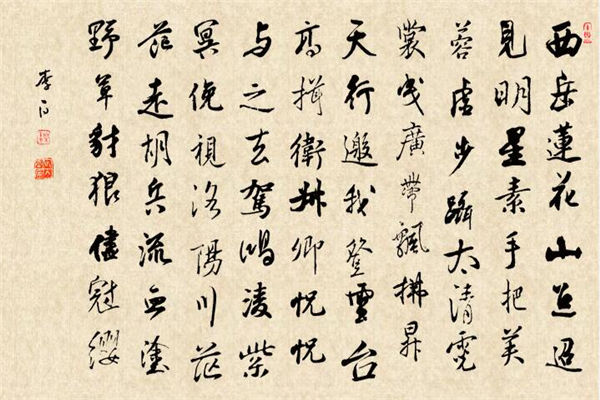 西岳蓮花山迢迢
見明星素手把芙
蓉虚步躡太清霓
裳曳廣帶飄拂昇
天行邀我登雲台
高揖衛叔卿恍恍
与之去駕鴻凌紫
冥俛視洛陽川茫
茫走胡兵流血塗
野草豺狼儘冠纓
李白